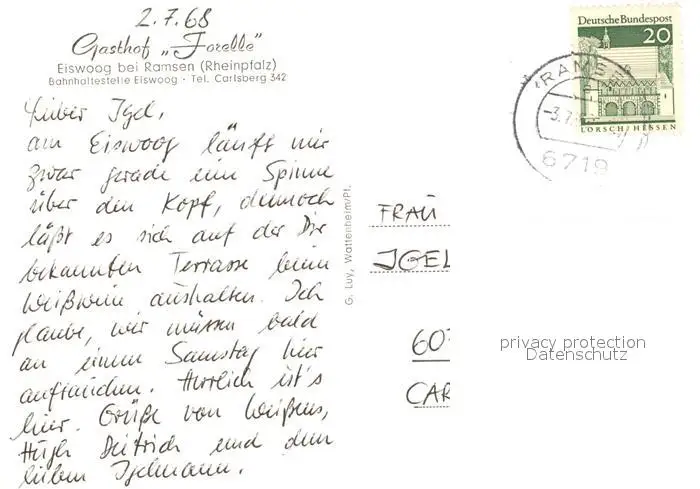 2.7.68
Gasthof „Forelle"
Eiswoog bei Ramsen (Rheinpfalz)
Bahnhaltestelle Eiswoog · Tel. Carlsberg 342
Lieber Igel,
am Eiswoog läuft mir
zwar gerade eine Spinne
über den Kopf, dennoch
läßt es sich auf der Dir
bekannten Terrasse beim
Weißwein aushalten. Ich
glaube, wir müssen bald
an einem Samstag hier
auftauchen. Herrlich ist's
hier. Grüße von
Hugh Dietrich und dem
lieben Igelmann.
G. Luy, Wattenheim/Pf.
Deutsche Bundespost
20
LORSCH/HESSEN
RAMSE
-3.7.
6719
FRAU
IGEL
607
CAR
privacy protection
Datenschutz